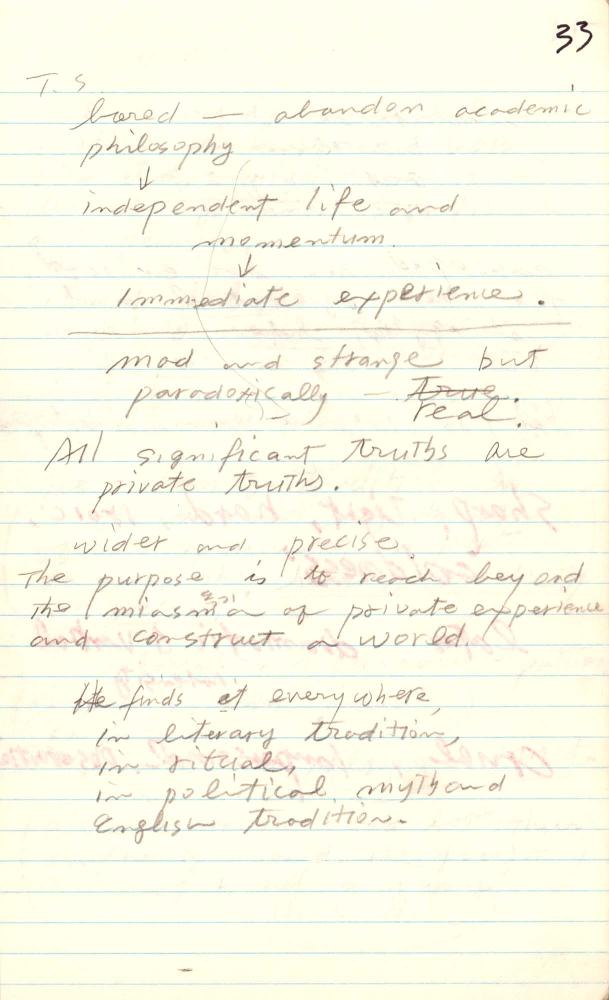 33
T. S.
bored — abandon academic
philosophy
↓
independent life and
momentum.
↓
Immediate experience.
mad and strange but
paradoxically — true.
real.
All significant truths are
private truths.
wider and precise.
The purpose is to reach beyond
the miasma of private experience
and construct a world.
He finds it everywhere,
in literary tradition,
in ritual,
in political myth and
English tradition.